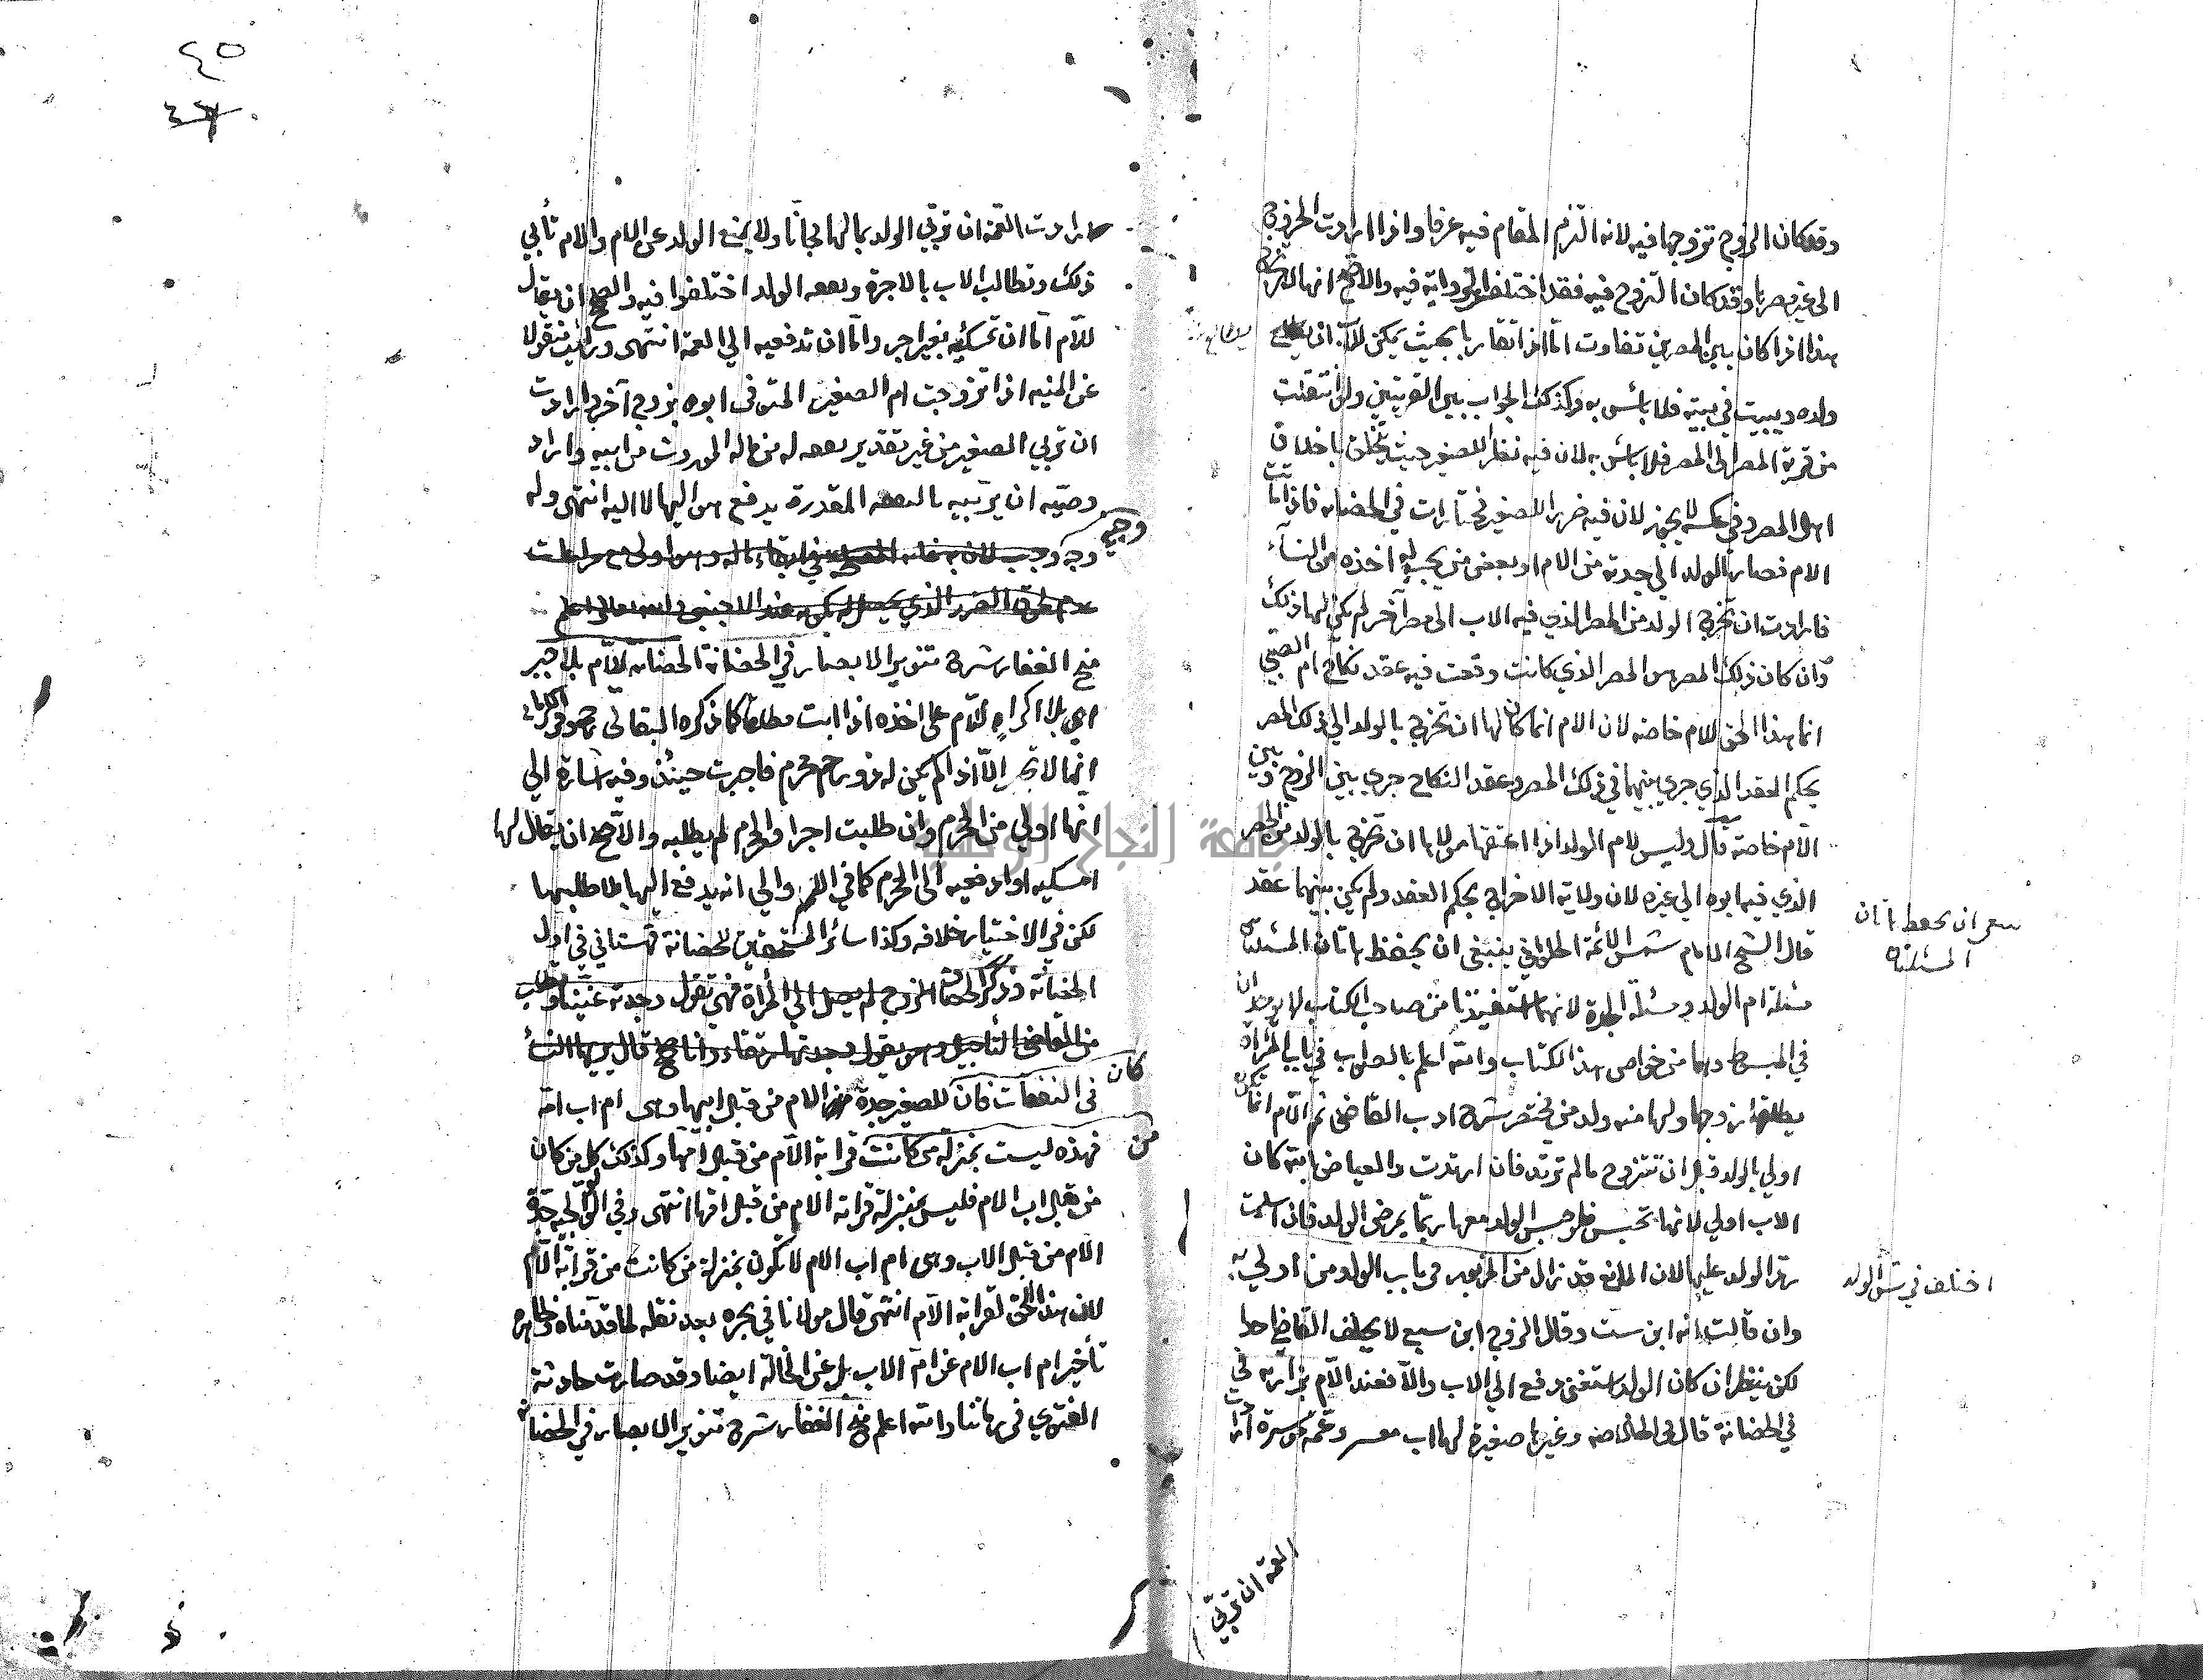 وقد كان الزوج تزوجها فيه لانه التزم المقام فيه عرفا واذا ارادت الخروج
الى غير مصرها وقد كان التزوج فيه فقد اختلف الرواية فيه والاصح انها لا تخرج
هذا اذا كان بين المصرين تفاوت اما اذا تقاربا بحيث يمكن للاب ان يطالع
ولده ويبيت في بيته فلا بأس به وكذلك الجواب بين القريتين ولو انتقلت
من قرية المصر الى المصر فلا بأس به لان فيه نظرا للصغير حيث يتخلق باخلاق
اهل المصر وفي عكسه لا يجوز لان فيه ضررا للصغير مختارات في الحضانه فاذا ماتت
الام فصار الولد الى جدته من الام او بعض من يجب له اخذه من النسآء
فارادت ان تخرج الولد من المصر الذي فيه الاب الى مصر آخر لم يكن لها ذلك
وان كان ذلك المصر هو المصر الذي كانت وقعت فيه عقد نكاح ام الصبي
انما هذا الحق للام خاصه لان الام انما كان لها ان تخرج بالولد الى ذلك المصر
بحكم العقد الذي جرى بينهما في ذلك المصر وعقد النكاح جرى بين الزوج وبين
الام خاصة قال وليس لام الولد اذا اعتقها مولاها ان تخرج بالولد من المصر
الذي فيه ابوه الى غيره لان ولاية الاخراج بحكم العقد ولم يكن بينهما عقد
قال الشيخ الامام شمس الائمة الحلواني ينبغي ان يحفظ هاتان المسئلتان
مسئلة ام الولد ومسئلة الجدة لانهما استفيدتا من صاحب الكتاب لا يوجدان
في المبسوط وهما من خواص هذا الكتاب والله اعلم بالصواب في باب المرأة
يطلقها زوجها ولها منه ولد من مختصر شرح ادب القاضي ثم الام انما تكون
اولى بالولد قبل ان تتزوج ما لم ترتد فان ارتدت والعياذ بالله كان
الاب اولى لانها تحبس فلو حبس الولد معها ربما يمرض الولد فان اسلمت
يرد الولد عليها لان المانع قد زال من باب الولد من اولى به
وان قالت انه ابن ست وقال الزوج ابن سبع لا يحلف القاضي احدا
لكن ينظر ان كان الولد استغنى دفع الى الاب والا فعند الام في
في الحضانة قال في الخلاصه وغيرها صغيرة لها اب معسر وعمة موسرة ارادت
يطالع
ان يحفظ هاتان
المسئلتان
اختلف في سن الولد
العمة ان تربي
٤٥
ارادت العمة ان تربي الولد بمالها مجانا ولا يمنع الولد عن الام والام تأبى
ذلك وتطالب الاب بالاجرة ونفقه الولد اختلفوا فيه والصحيح ان يقال
للام اما ان تمسكيه بغير اجر واما ان تدفعيه الى العمة انتهى ورأيت منقولا
عن المنيه اذا تزوجت ام الصغير المتوفى ابوه بزوج آخر وارادت
ان تربي الصغير من غير تقدير نفقه له من ماله الموروث من ابيه واراد
وصيه ان يربيه بالنفقه المقدرة يدفع هو اليها لا اليه انتهى وله
وجه وجيه
منح الغفار شرح تنوير الابصار في الحضانة الحضانه للام بلا جبر
اي بلا اكراه للام على اخذه اذا ابت مطلقا كما ذكره البقالي
انها لا تجبر الا اذا لم يكن له ذو رحم محرم فاجبرت حينئذ وفيه اشارة الى
انها اولى من المحرم وان طلبت اجرا والمحرم لم يطلبه والاصح ان يقال لها
امسكيه او ادفعيه الى المحرم كما في والى انه يدفع اليها بلا طلبها
لكن في الاختيار خلافه وكذا سائر المستحقين للحضانة قهستاني في اول
الحضانة وذكر الخصاف الزوج لم يصل الى المرأة فهي تقول وجدته عنينا وتطلب
من القاضي التأجيل وهو يقول وجدتها رتقاء وانا صحيح قال يريها النسأ
في النفقات فان كان للصغير جدة من الام من قبل ابيها وهي ام اب امه
فهذه ليست بمنزلة من كانت قرابة الام من قبل امها وكذلك كل من كان
من قبل اب الام فليس بمنزلة قرابة الام من قبل امها انتهى وفي الولوالجيه جدة
الام من قبل الاب وهي ام اب الام لا يكون بمنزلة من كانت من قرابة الام
لان هذا الحق لقرابة الام انتهى قال مولانا في بحره بعد نقله لما قدمناه وظاهره
تأخير ام اب الام عن ام الاب بل عن الخالة ايضا وقد صارت حادثة
الفتوى في زماننا والله اعلم منح الغفار شرح تنوير الابصار في الحضانه
جامعة النجاح الوطنية